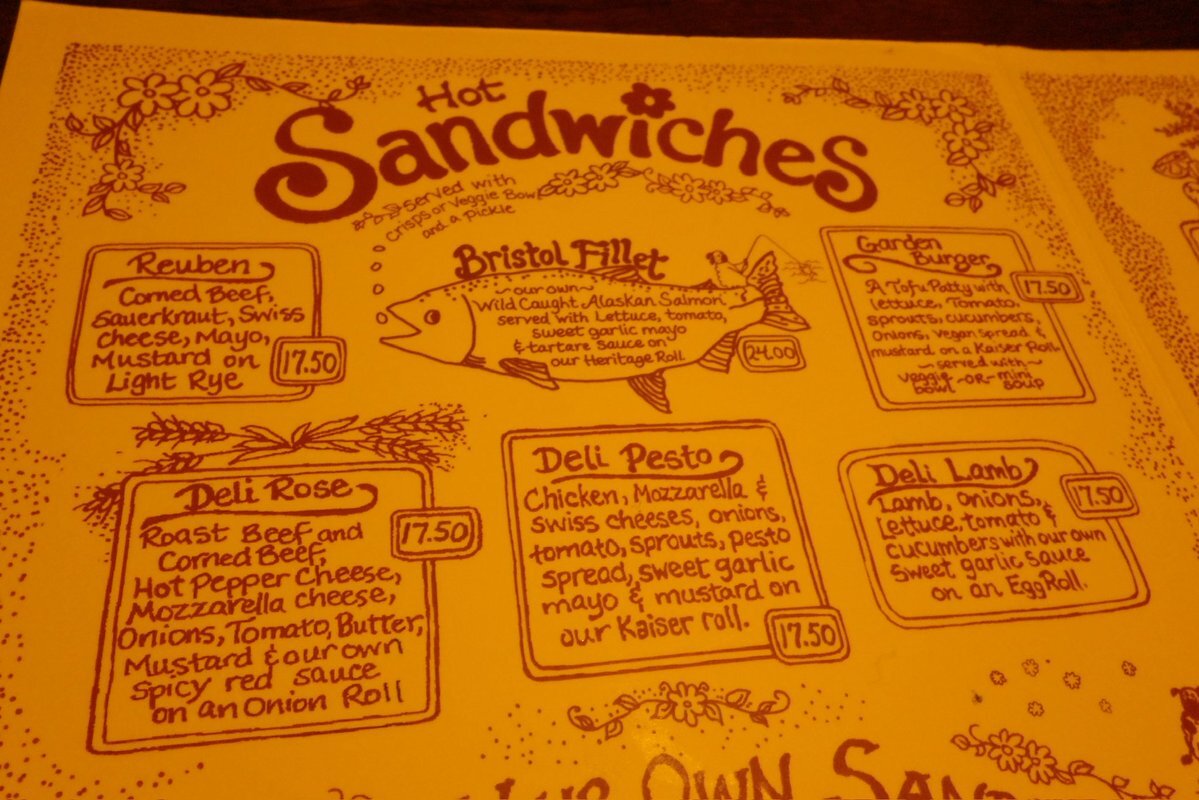 Hot
Sandwiches
served with
crisps or Veggie Bowl
and a pickle
Reuben
Corned Beef,
Sauerkraut, Swiss
cheese, Mayo,
Mustard on
Light Rye
17.50
Bristol Fillet
~our own~
Wild Caught Alaskan Salmon
served with Lettuce, tomato,
sweet garlic mayo
& tartare sauce on
our Heritage Roll
24.00
Garden
Burger
A Tofu Patty with
lettuce, Tomato,
sprouts, cucumbers
Onions, vegan spread &
mustard on a Kaiser Roll
~ served with ~
veggie bowl -OR- mini soup
17.50
Deli Rose
Roast Beef and
Corned Beef,
Hot Pepper Cheese,
Mozzarella cheese,
Onions, Tomato, Butter,
Mustard & our own
spicy red sauce
on an Onion Roll
17.50
Deli Pesto
Chicken, Mozzarella &
swiss cheeses, onions,
tomato, sprouts, pesto
spread, sweet garlic
mayo & mustard on
our Kaiser roll.
17.50
Deli Lamb
Lamb, onions,
Lettuce, tomato &
cucumbers with our own
Sweet garlic sauce
on an Egg Roll.
17.50
OWN